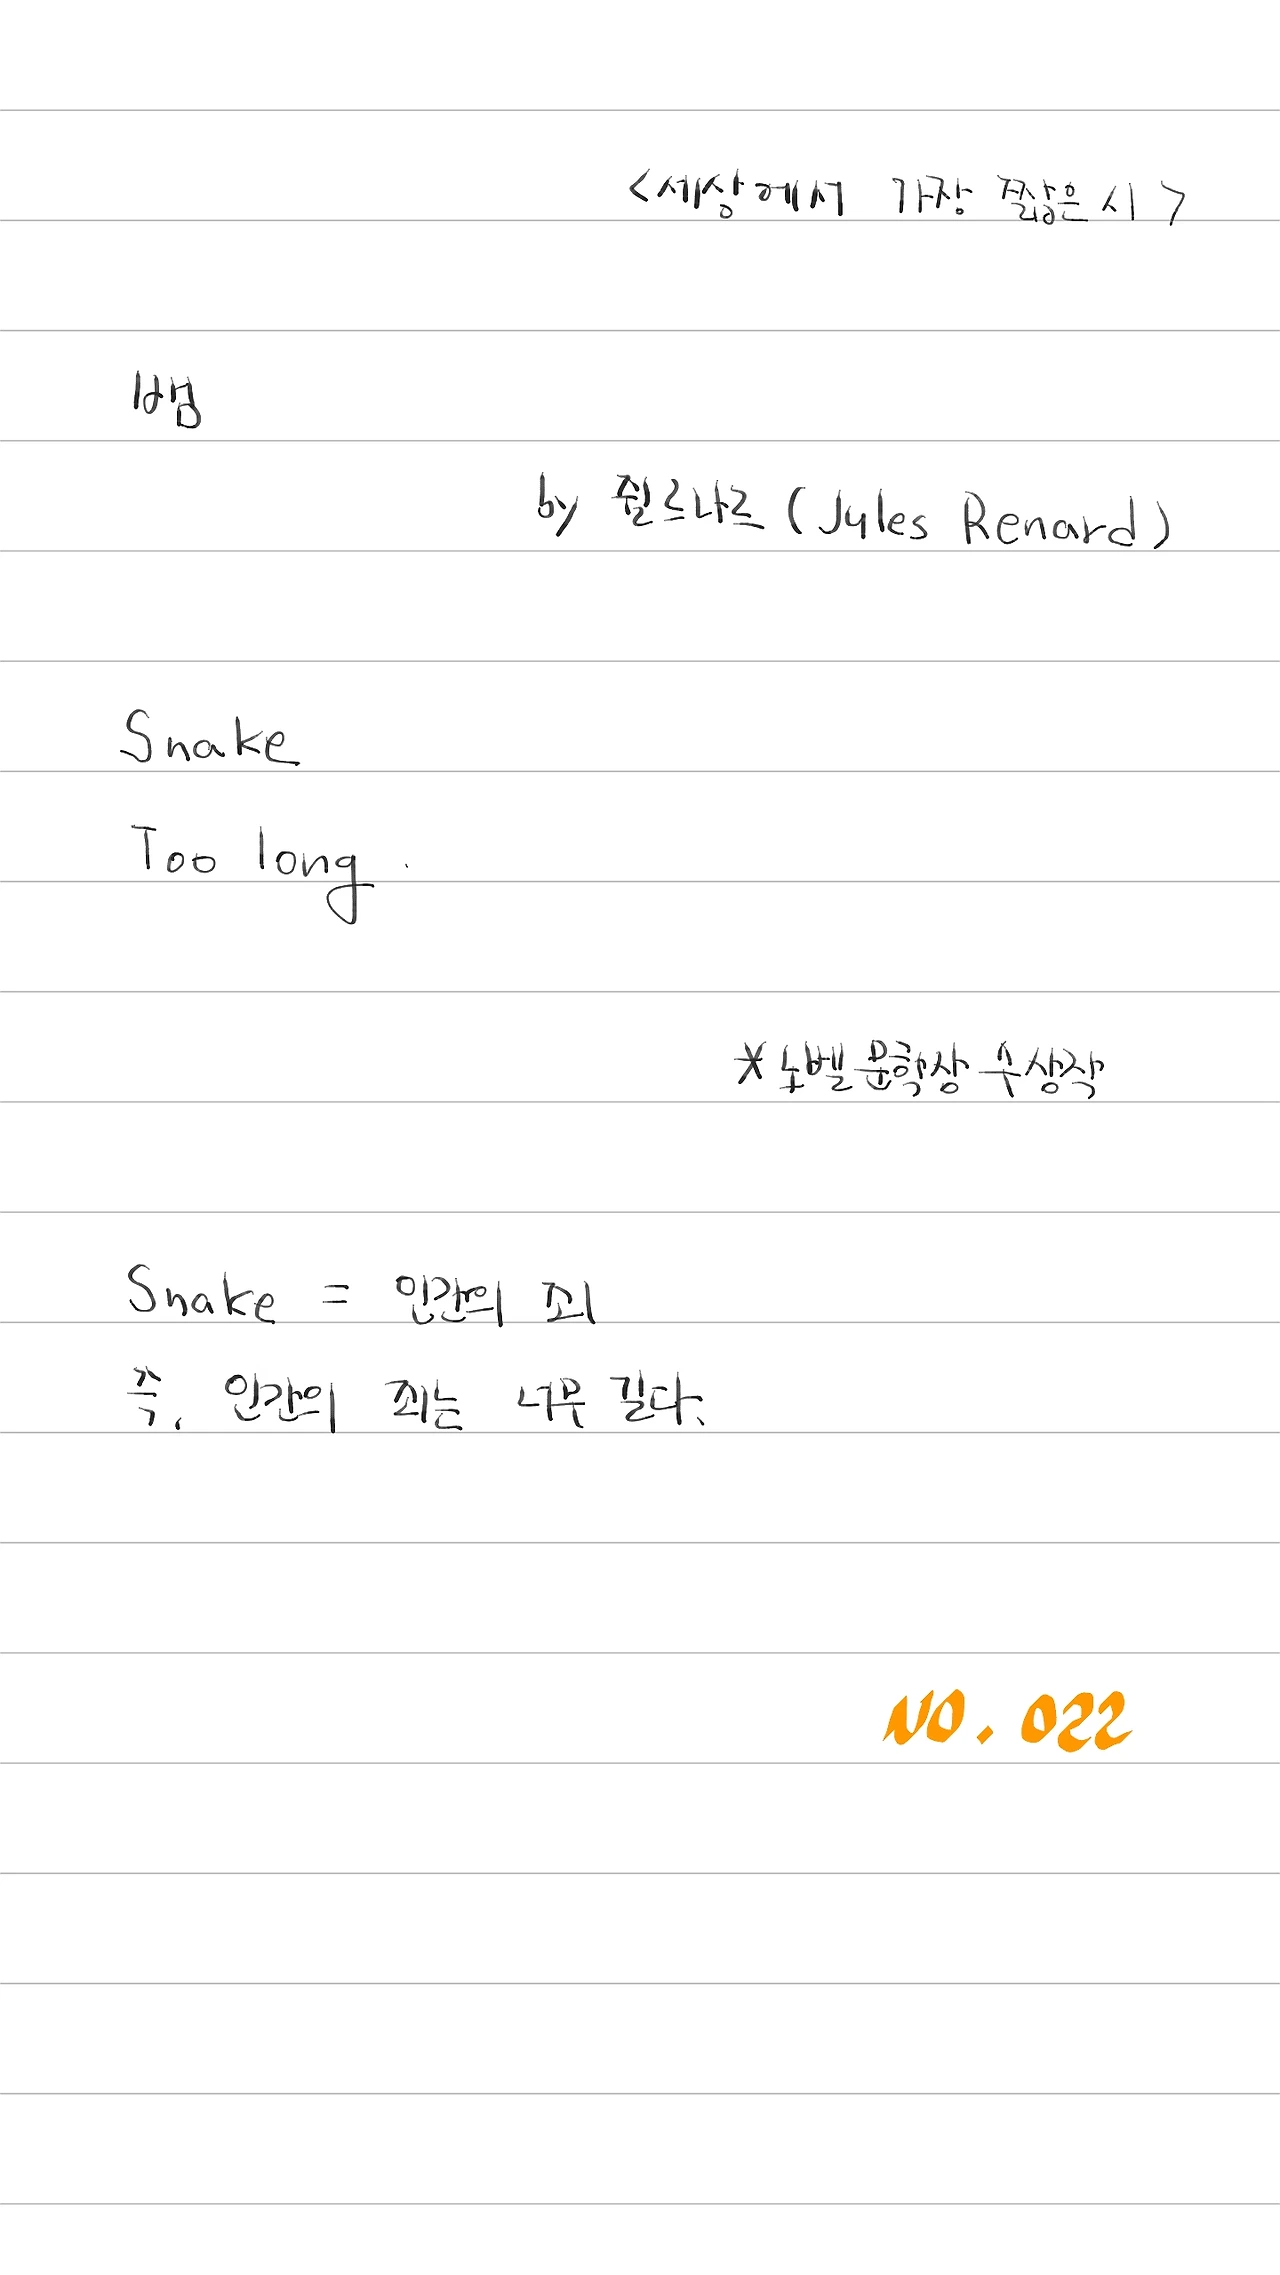 <세상에서 가장 짧은 시>
뱀
by 쥘르나르 (Jules Renard)
Snake
Too long.
*노벨문학상 수상작
Snake = 인간의 죄
즉, 인간의 죄는 너무 길다.
NO. 022